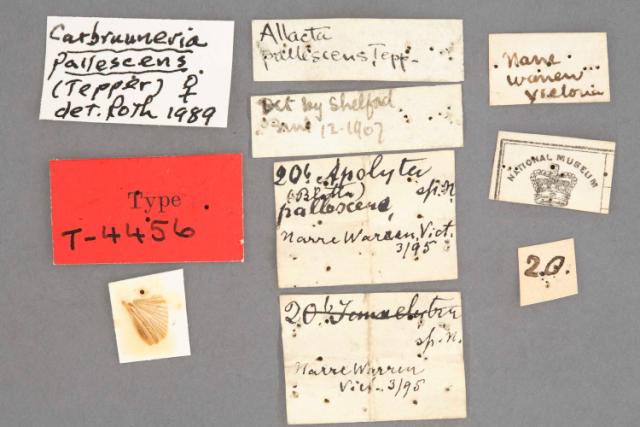 Carbrunneria
pallescens
(Tepper) ♀
det. Roth 1989
Type
T-4456
Allacta
pallescens Tepp.
Det by Shelford
12-1907
20b Apolyta
(Blatta) sp. N.
pallescens
Narre Warren, Vict.
3/95
20b
sp. N.
Narre Warren
Vict. 3/95
Narre
Warren
Victoria
NATIONAL MUSEUM
20.